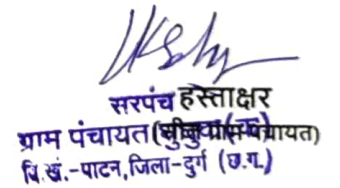 सरपंच हस्ताक्षर
ग्राम पंचायत
वि.खं.-पाटन, जिला-दुर्ग (छ.ग.)